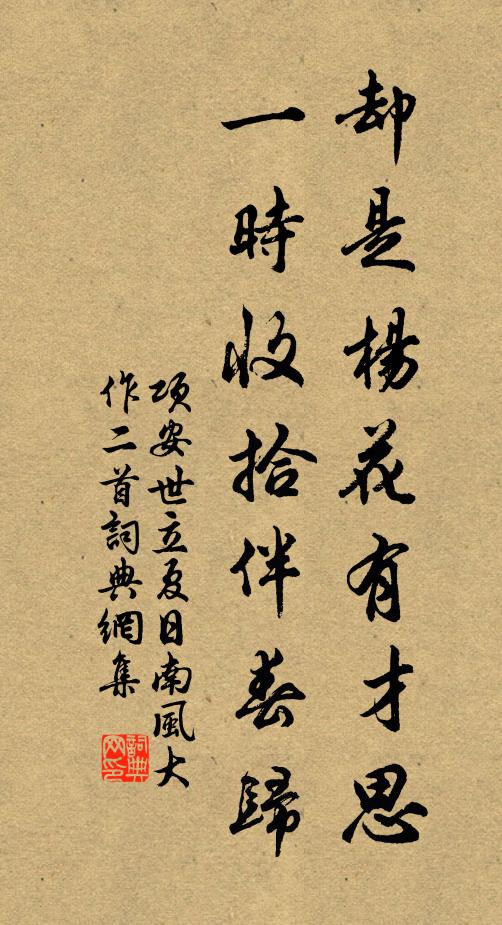 却是楊花有才思
一時收拾伴春歸
項安世立夏日南風大
作二首詞典網集
詞典
网印